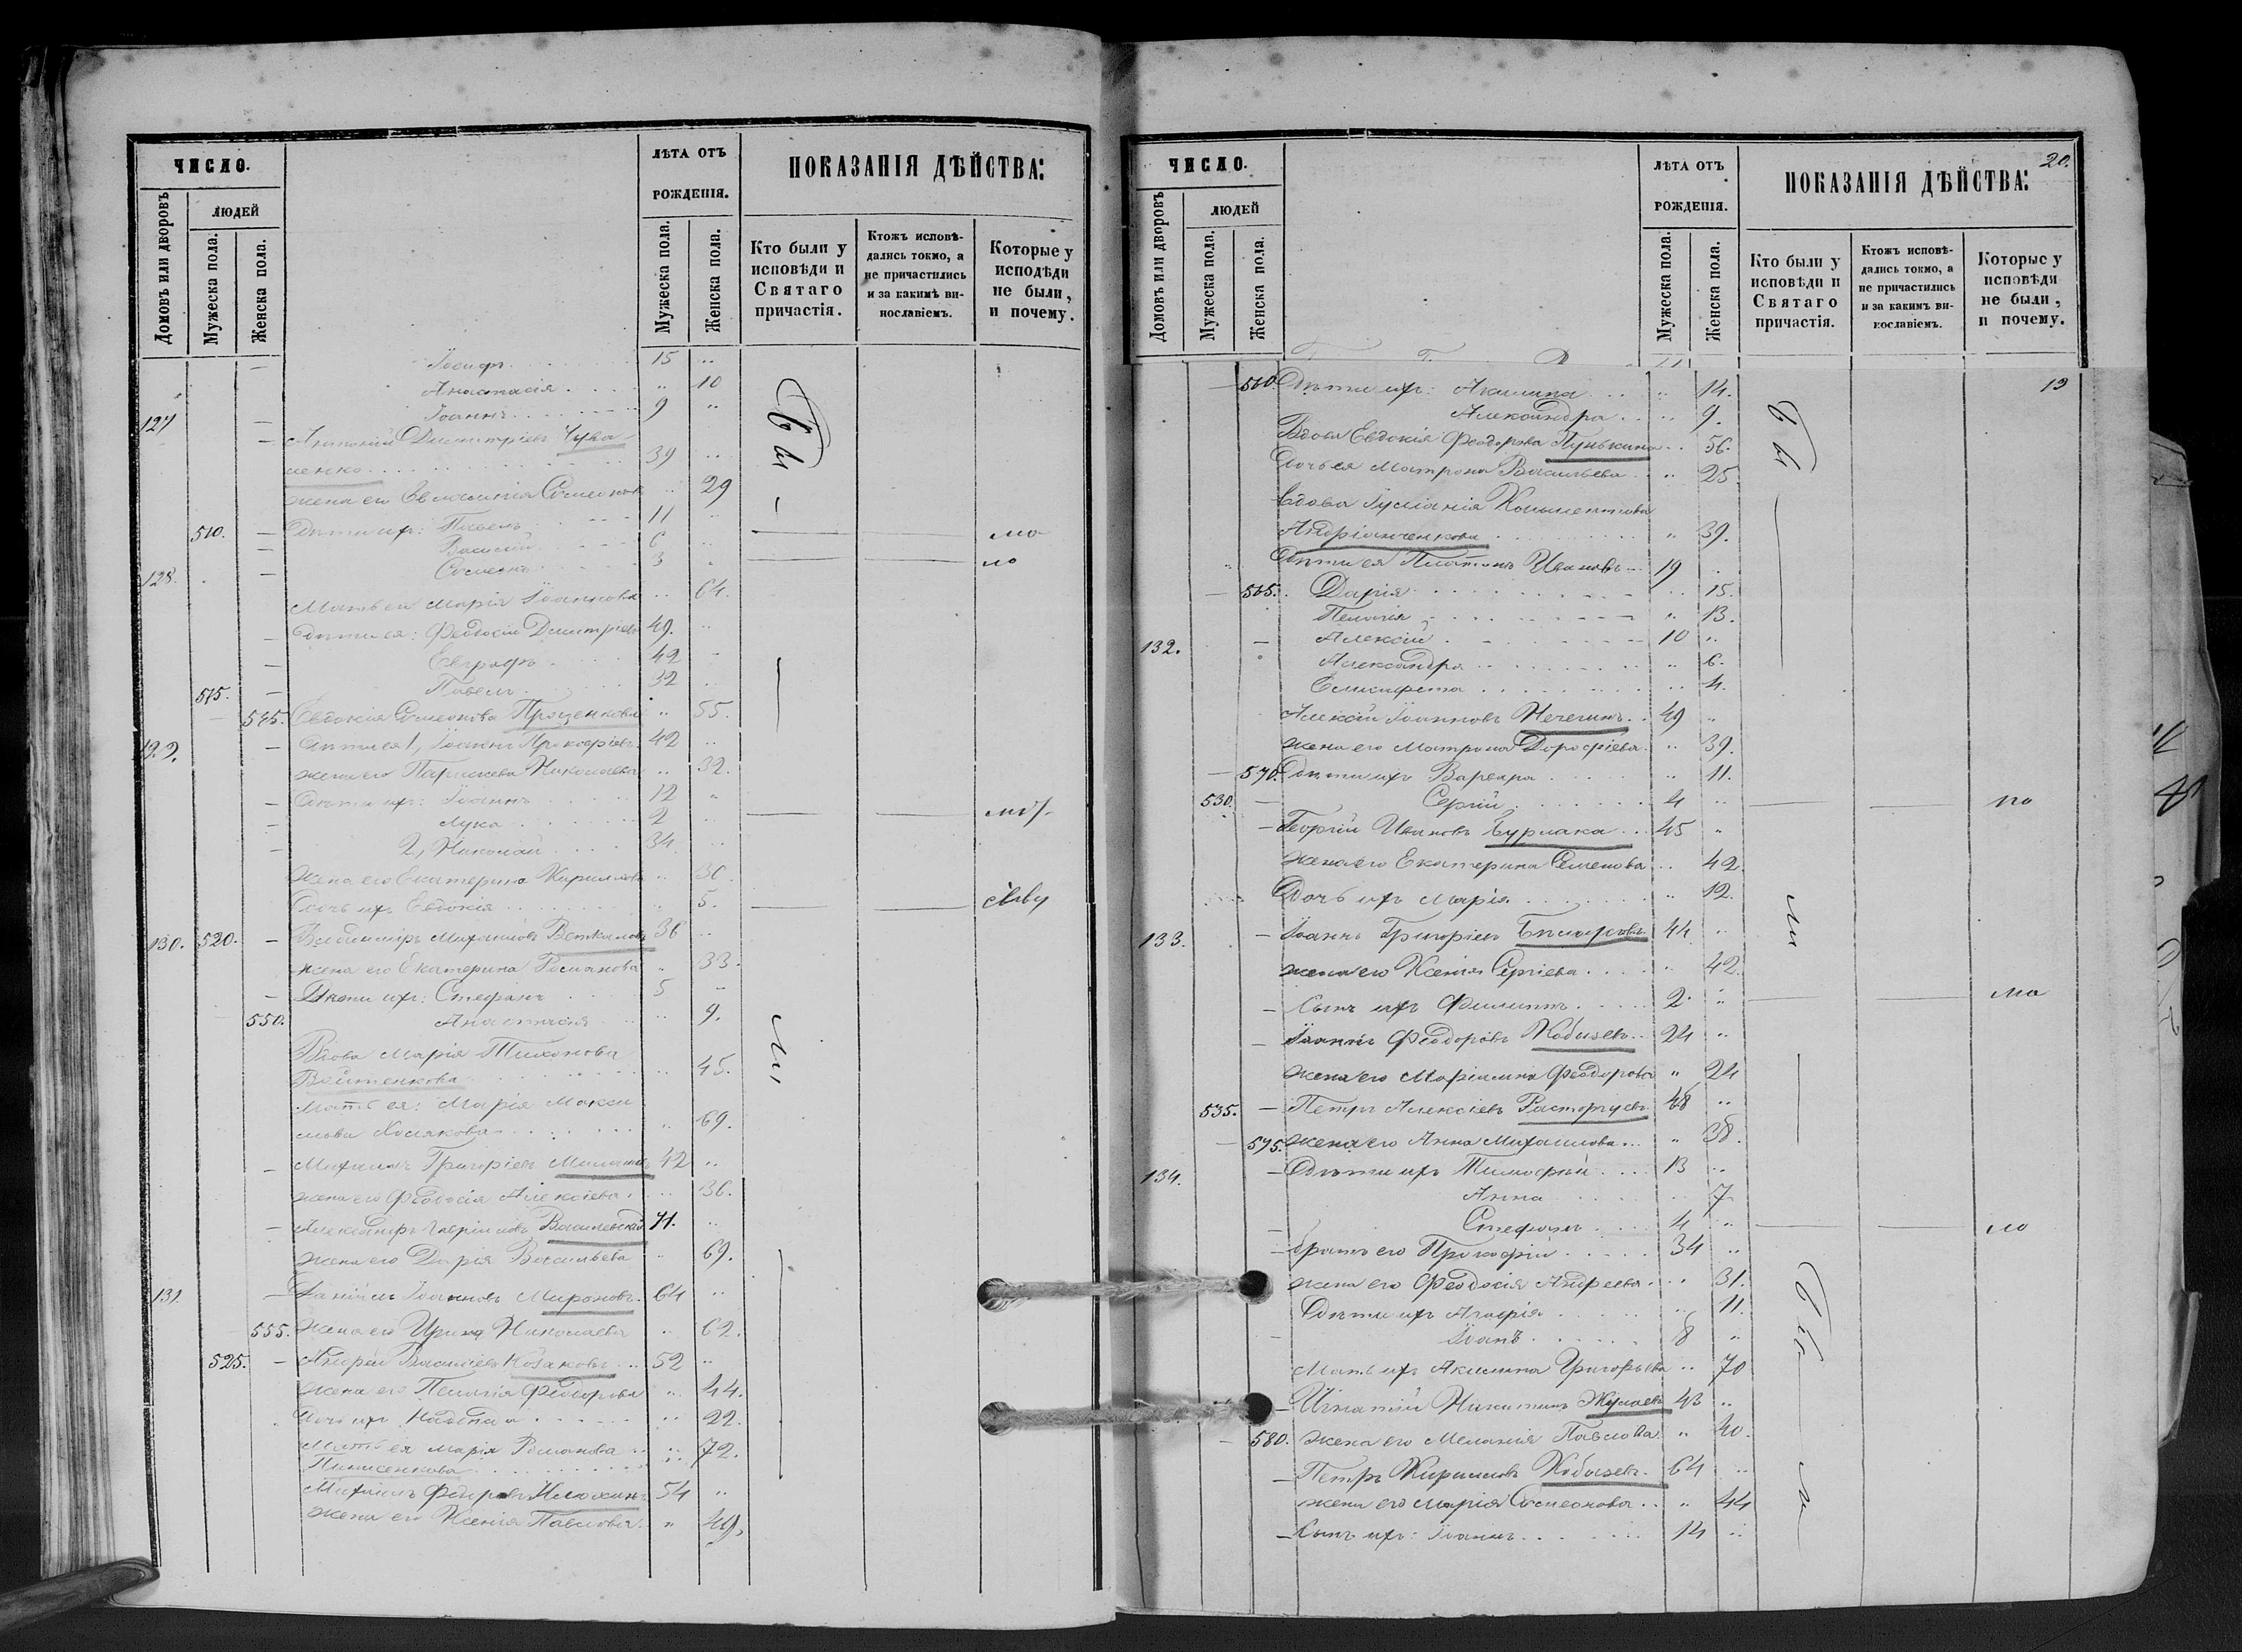 ЧИСЛО.
ЛѢТА ОТЪ РОЖДЕНІЯ.
ПОКАЗАНІЯ ДѢЙСТВА:
Домовъ или дворовъ
ЛЮДЕЙ
Мужеска пола.
Женска пола.
Мужеска пола.
Женска пола.
Кто были у исповѣди и Святаго причастія.
Ктожъ исповѣ-дались токмо, а не причастились и за какимъ ви-нославіемъ.
Которые у исподѣди не были, и почему.
Іосифъ 15
Анастасія 10
127 Іоаннъ 9
Димитріевъ Чука-
ленко 39
жена его 29
510. Дѣти ихъ: Павелъ 11
Василій 6 мо
128. Симеонъ 3 ло
Мать ея Марія Іоаннова 64.
Дѣти ея: Феодосій Димитріевъ 49.
Евграфъ 42
515. Павелъ 32
545. Евдокія Симеонова Проценкова 55.
129. Дѣти ея 1, Іоаннъ Прокофіевъ 42
жена его Параскева Николаева 32.
Дѣти ихъ: Іоаннъ 12
Лука 2
2, Николай 34
жена его Екатерина Кириллова 30
Дочь ихъ Евдокія 5.
130. 520. Михаиловъ 36
жена его Екатерина Романова 33.
ихъ: Стефанъ 5
550. Анастасія 9.
Вдова Марія Тихонова
Войтенкова 45.
Мать ея: Марія Макси
мова 69.
Михаилъ Григоріевъ 42
жена его Феодосія Алексіева 36.
Александръ Гавріиловъ Василевскій 71.
жена его Дарія Васильева 69.
131. Даніилъ Іоанновъ Мироновъ. 64
555. жена его Ирина Николаева 62.
525. Андрей Василіевъ Козаковъ 52
жена его Пелагія Феодорова 44.
Дочь ихъ Надежда 22.
Мать ея Марія Романова 72.
Михаилъ 54
жена его Ксенія Павлова 49,
Бы
ли
ЧИСЛО.
ЛѢТА ОТЪ РОЖДЕНІЯ.
ПОКАЗАНІЯ ДѢЙСТВА:
20.
Домовъ или дворовъ
ЛЮДЕЙ
Мужеска пола.
Женска пола.
Мужеска пола.
Женска пола.
Кто были у исповѣди и Святаго причастія.
Ктожъ исповѣ-дались токмо, а не причастились и за какимъ ви-кославіемъ.
Которые у исповѣди не были, и почему.
560. Дѣти ихъ: Акилина 14. 19
Александра 9.
Вдова Евдокія Феодорова Пунькина 56.
Дочь ея Матрона Васильева 25.
Вдова Іуліанія
Андріанченкова 39.
Дѣти ея Платонъ Ивановъ 19
565. Дарія 15.
Пелагія 13.
132. Алексій 10
Александра 6.
Елисафета 4.
Алексій Іоанновъ Нечегинъ 49
жена его Матрона Дорофіева 39.
570. Дѣти ихъ Варвара 11.
530. Сергій 4
Георгій Ивановъ Бурлака 45
жена его Екатерина Семенова 42.
Дочь ихъ Марія 12.
133. Іоаннъ Григоріевъ 44
жена его Ксенія Сергіева 42.
Сынъ ихъ Филиппъ 2. мо
Іоаннъ Феодоровъ Кобызевъ 24
жена его Маріамна Феодорова 24
535. Петръ Алексіевъ Расторгуевъ 48
575. жена его Анна Михаилова 38.
134. Дѣти ихъ Тимофей 13
Анна 7
Стефанъ 4 ло
братъ его Прокофій 34
жена его Феодосія Андреева 31.
Дѣти ихъ Агафія 11.
Іоанъ 8
Мать ихъ Акилина Григорьева 70
Игнатій Никитинъ 43
580. жена его Меланія Павлова 40.
Петръ Кирилловъ Кобызевъ 64
жена его Марія Симеонова 44
Сынъ ихъ: Іоаннъ 14
Бы
ли
Бы
ли